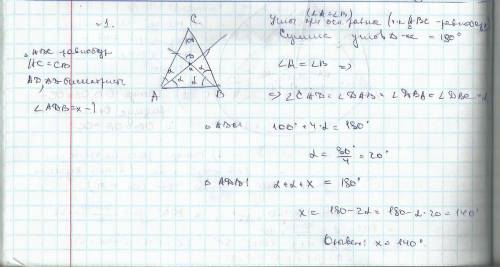 ~1.
△ABC равнобедр
AC = CB
AD, DB биссектрисы
∠ADB = x - ?
C
100
D
x
α α
α α
A B
(∠A = ∠B)
Углы при осн. равны (т.к. △ABC - равнобедр
Сумма углов △-ка = 180°
∠A = ∠B ⇒
⇒ ∠CAD = ∠DAB = ∠DBA = ∠DBC = α
△ABC: 100° + 4·α = 180°
α = 80°/4 = 20°
△ADB: α + α + x = 180°
x = 180 - 2α = 180 - 2·20 = 140°
Ответ: x = 140°